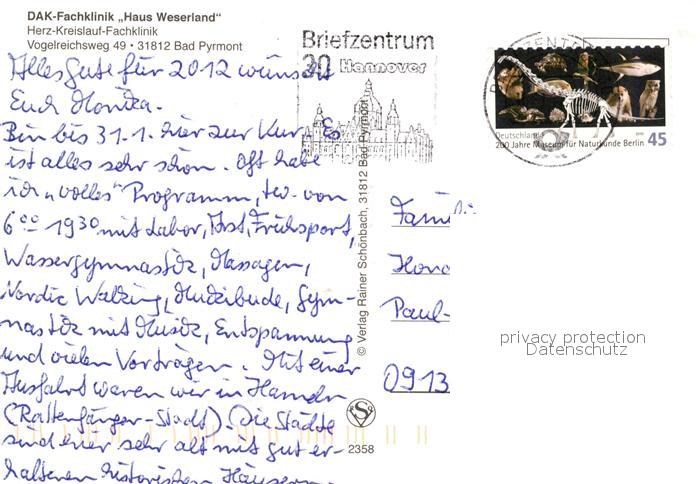 DAK-Fachklinik „Haus Weserland“
Herz-Kreislauf-Fachklinik
Vogelreichsweg 49 • 31812 Bad Pyrmont
Alles Gute für 2012 wünscht
Euch Monika.
Bin bis 31.1. hier zur Kur. Es
ist alles sehr schön. Oft habe
ich „volles“ Programm, tw. von
6⁰⁰ 19³⁰ mit Labor, Arzt, Frühsport,
Wassergymnastik, Massagen,
Nordic Walking, Muckibude, Gym-
nastik mit Musik, Entspannung
und vielen Vorträgen. Mit einer
Ausfahrt waren wir in Hameln
(Rattenfänger-Stadt). Die Städte
sind hier sehr alt mit gut er-
haltenen historischen Häusern
Briefzentrum
30 Hannover
© Verlag Rainer Schönbach, 31812 Bad Pyrmont
2358
Deutschland
45
200 Jahre Museum für Naturkunde Berlin
Fami
Paul-
0913
privacy protection
Datenschutz